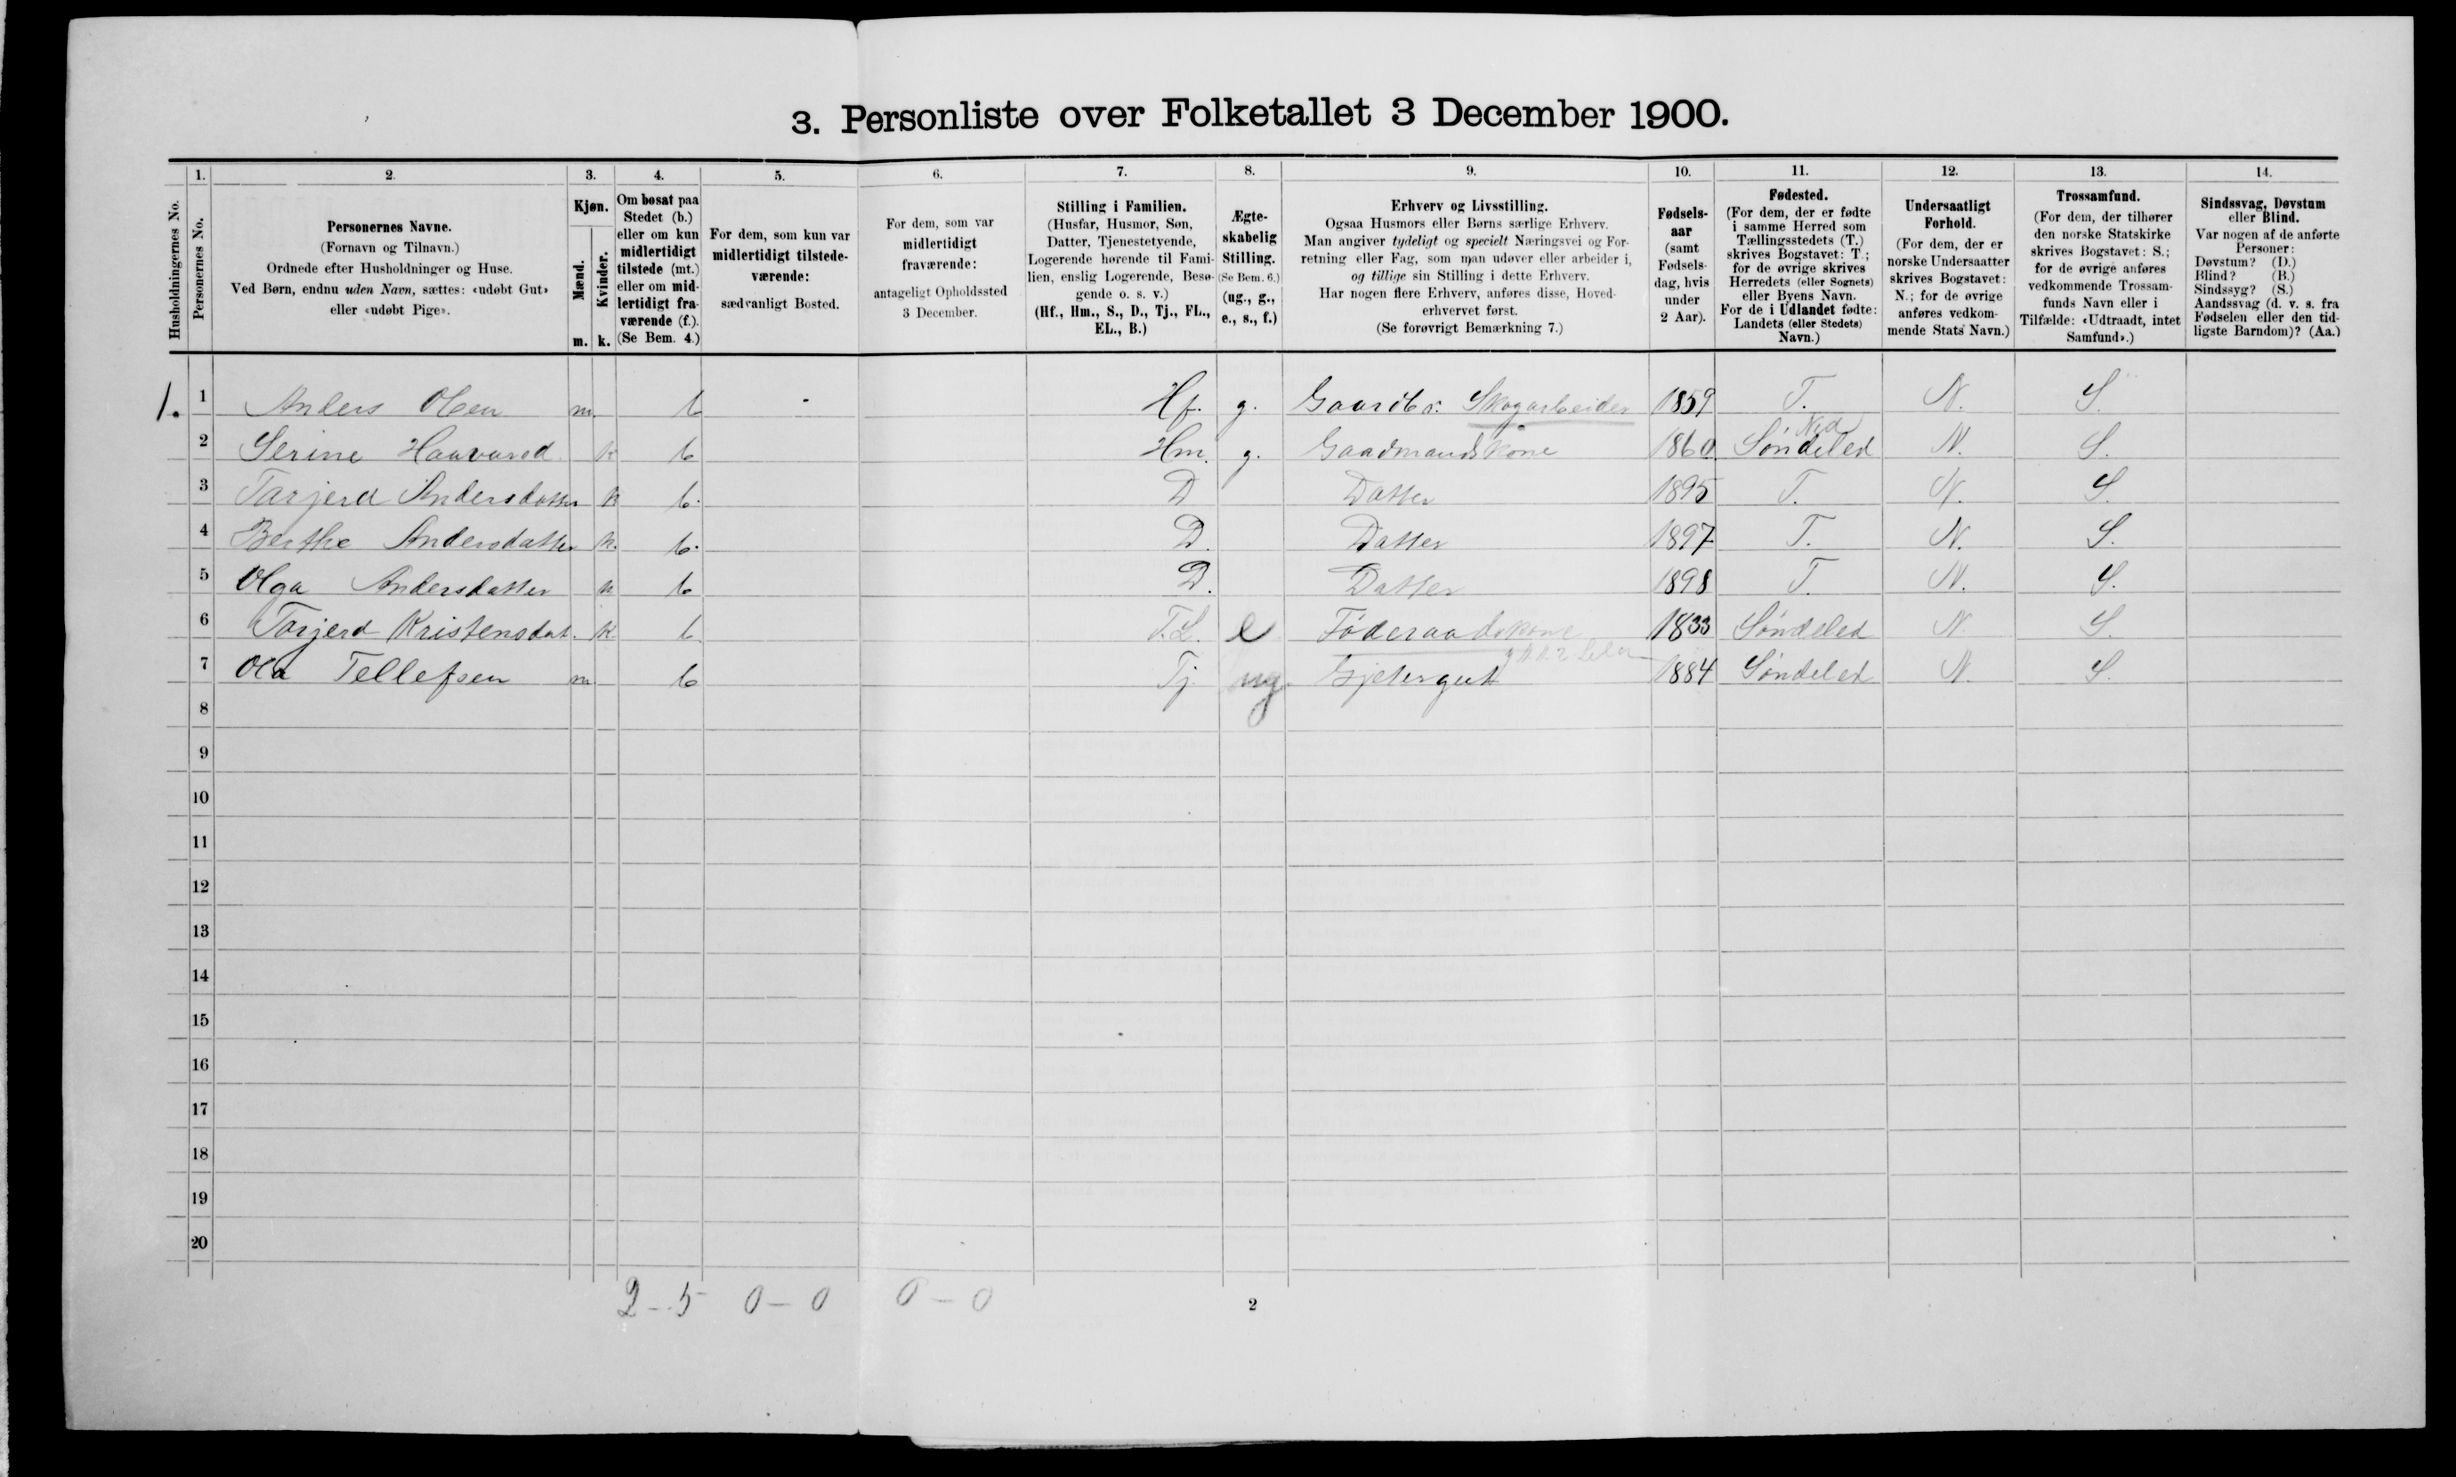 3. Personliste over Folketallet 3 December 1900.
1. 2. 3. 4. 5. 6. 7. 8. 9. 10. 11. 12. 13. 14.
Husholdningernes No.
Personernes No.
Personernes Navne.
(Fornavn og Tilnavn.)
Ordnede efter Husholdninger og Huse.
Ved Børn, endnu uden Navn, sættes: «udøbt Gut»
eller «udøbt Pige».
Kjøn.
Mænd.
Kvinder.
m. k.
Om bosat paa
Stedet (b.)
eller om kun
midlertidigt
tilstede (mt.)
eller om mid-
lertidigt fra-
værende (f.).
(Se Bem. 4.)
For dem, som kun var
midlertidigt tilstede-
værende:
sædvanligt Bosted.
For dem, som var
midlertidigt
fraværende:
antageligt Opholdssted
3 December.
Stilling i Familien.
(Husfar, Husmor, Søn,
Datter, Tjenestetyende,
Logerende hørende til Fami-
lien, enslig Logerende, Besø-
gende o. s. v.)
(Hf., Hm., S., D., Tj., FL.,
EL., B.)
Ægte-
skabelig
Stilling.
(Se Bem. 6.)
(ug., g.,
e., s., f.)
Erhverv og Livsstilling.
Ogsaa Husmors eller Børns særlige Erhverv.
Man angiver tydeligt og specielt Næringsvei og For-
retning eller Fag, som man udøver eller arbeider i,
og tillige sin Stilling i dette Erhverv.
Har nogen flere Erhverv, anføres disse, Hoved-
erhvervet først.
(Se forøvrigt Bemærkning 7.)
Fødsels-
aar
(samt
Fødsels-
dag, hvis
under
2 Aar).
Fødested.
(For dem, der er fødte
i samme Herred som
Tællingsstedets (T.)
skrives Bogstavet: T.;
for de øvrige skrives
Herredets (eller Sognets)
eller Byens Navn.
For de i Udlandet fødte:
Landets (eller Stedets)
Navn.)
Undersaatligt
Forhold.
(For dem, der er
norske Undersaatter
skrives Bogstavet:
N.; for de øvrige
anføres vedkom-
mende Stats Navn.)
Trossamfund.
(For dem, der tilhører
den norske Statskirke
skrives Bogstavet: S.;
for de øvrige anføres
vedkommende Trossam-
funds Navn eller i
Tilfælde: «Udtraadt, intet
Samfund».)
Sindssvag, Døvstum
eller Blind.
Var nogen af de anførte
Personer:
Døvstum? (D.)
Blind? (B.)
Sindssyg? (S.)
Aandssvag (d. v. s. fra
Fødselen eller den tid-
ligste Barndom)? (Aa.)
1. 1 Anders Olsen m. b - Hf. g. Gaardbr. Skogarbeider 1859 T. N. S.
Ned
2 Serine Haavarsd. k b Hm. g. Gaadmandskone 1860 Søndeled N. S.
3 Tarjerd Andersdatter k b. D Datter 1895 T. N. S.
4 Berthe Andersdatter k. b. D. Datter 1897 T. N. S.
5 Olga Andersdatter k b D. Datter 1898 T. N. S.
6 Tarjerd Kristensdat. k b F.L. e Føderaadskone 1833 Søndeled N S.
7 Ola Tellefsen m b Tj. ug. Gjetergut 1884 Søndeled N. S.
8
9
10
11
12
13
14
15
16
17
18
19
20
2 - 5 0 - 0 0 - 0
2